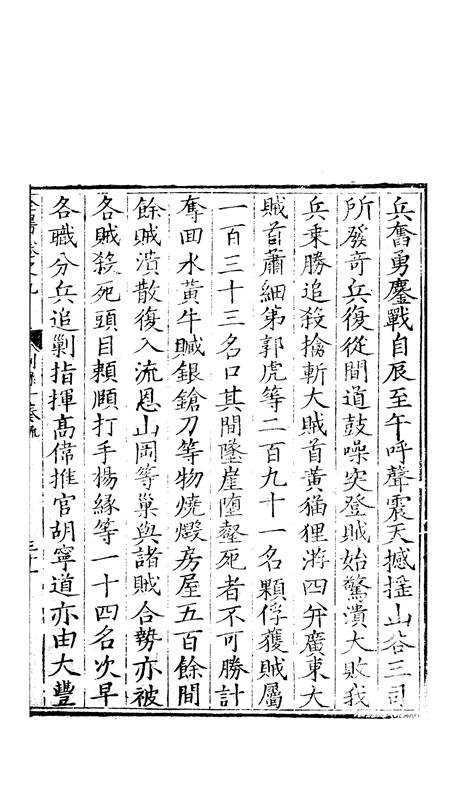 兵奮勇鏖戰自辰至午呼聲震天撼搖山谷三司
所發奇兵復從間道鼓噪突登賊始驚潰大敗我
兵乘勝追殺擒斬大賊首黃猫狸游四并廣東大
賊首蕭細弟郭虎等二百九十一名顆俘獲賊屬
一百三十三名口其間墜崖墮壑死者不可勝計
奪回水黃牛贓銀鎗刀等物燒燬房屋五百餘間
餘賊潰散復入流恩山岡等巢與諸賊合勢亦被
各賊殺死頭目賴頤打手楊緣等一十四名次早
各職分兵追剿指揮高偉推官胡寧道亦由大豐